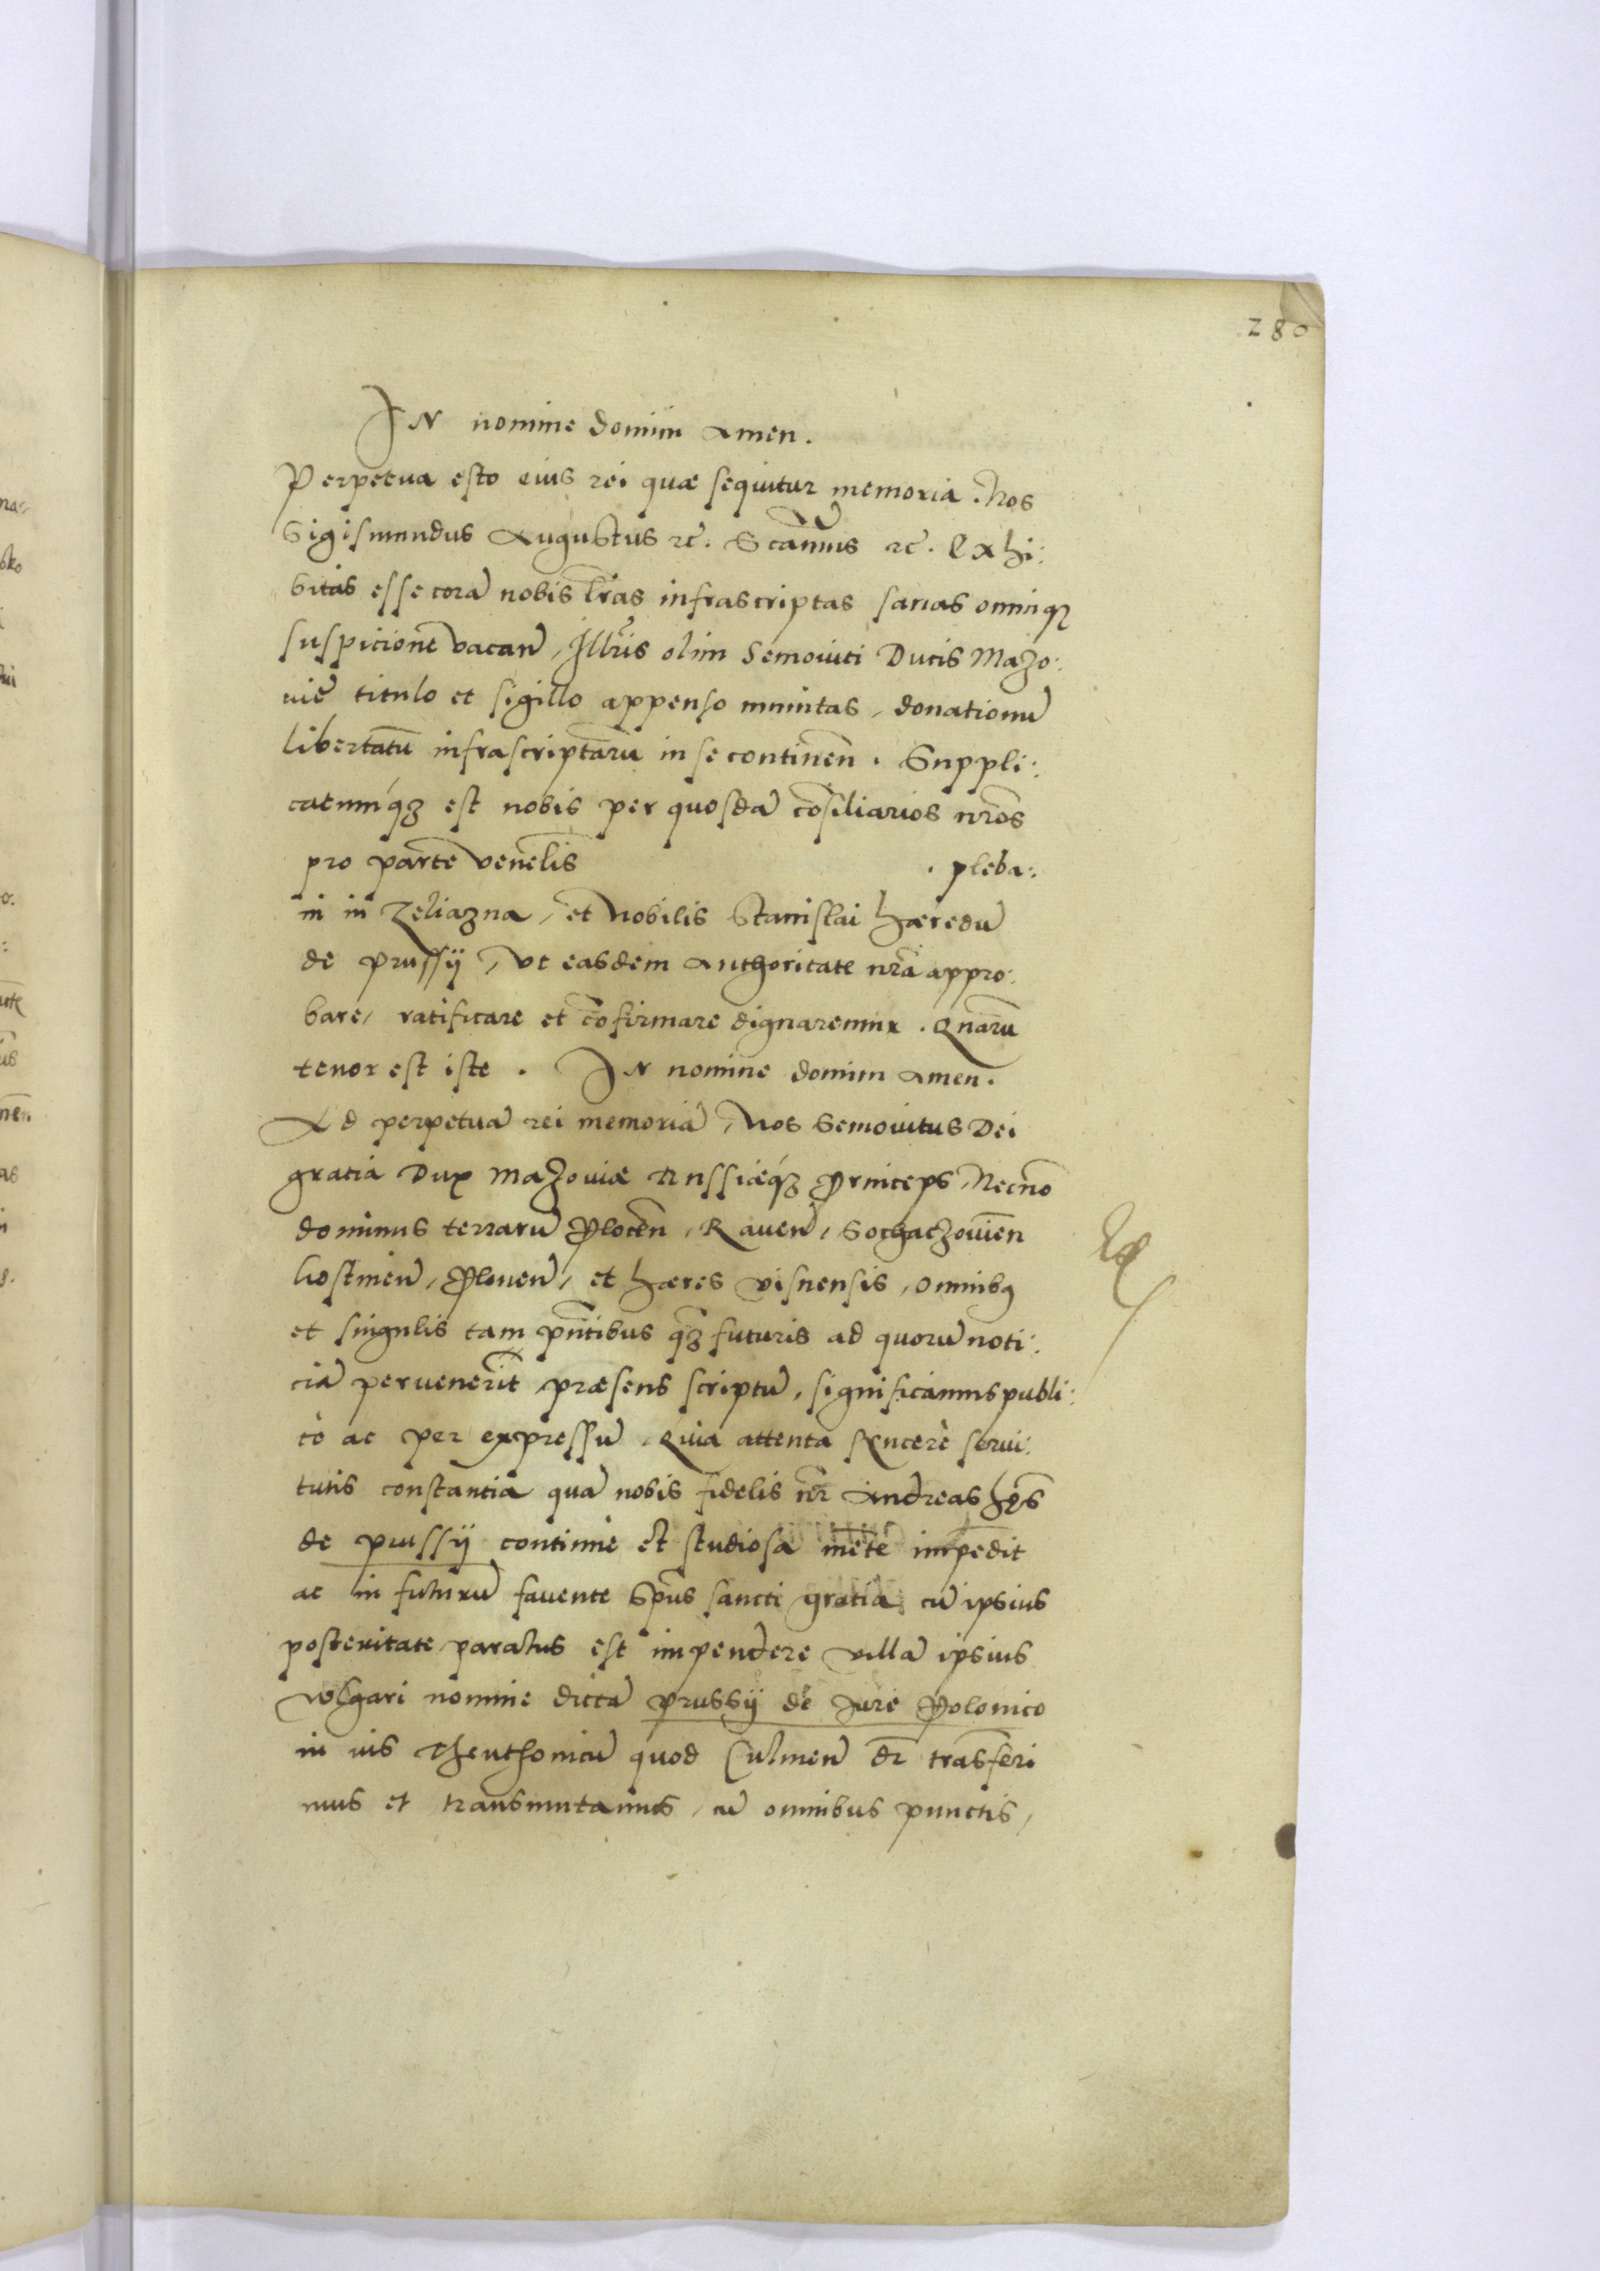 280
IN nomine domini Amen.
Perpetua esto eius rei quæ sequitur memoria. Nos
Sigismundus Augustus zc̃. Scãmus zc̃. Exhi:
bitas esse corã nobis lr̃as infrascriptas sanas omniq3
suspicionẽ vacan̄, Illr̃is olim Semouiti Ducis Mazo:
uiẽ titulo et sigillo appenso munitas, donationũ
libertatũ infrascriptarũ in se continen̄. Suppli:
catumq́3 est nobis per quosdã cõsiliarios nr̃os
pro parte venelis . pleba:
ni in Zeliazna, et Nobilis Stanislai hæredũ
de prussij, vt easdem Authoritate nr̃a appro:
bare, ratificare et cõfirmare dignaremur. Quarũ
tenor est iste. IN nomine domini Amen.
Ad perpetuã rei memoriã, Nos Semouitus Dei
gratia Dux Mazouiæ Russiæq́3 Princeps, Necnõ
dominus terrarũ Plocen̄, Rauen̄, Sochaczouien̄
Gostinen̄, Plonen̄, et hæres visnensis, omnibq3
et singulis tam pñtibus q̃3 futuris ad quorũ noti:
ciã peruenerit præsens scriptũ, significamus publi:
cè ac per expressũ, Quia attenta syncerè serui:
tutis constantia quã nobis fidelis nr̃ Andreas hæs̃
de prussij continuè et studiosa mẽte impedit
ac in futurũ fauente Spũs sancti gratia cũ ipsius
posteritate paratus est impendere villã ipsius
vulgari nomine dictã prussij de iure Polonico
in ius Theuthonicũ quod Culmen̄ dr̃ trãsferi
mus et transmutamus, cũ omnibus punctis,